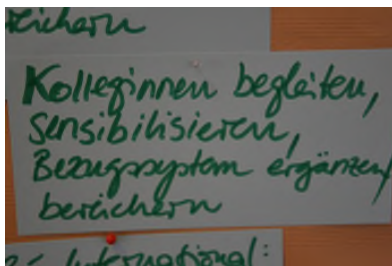 bereichern
Kolleginnen begleiten,
sensibilisieren,
Bezugssystem ergänzen/
bereichern
International: